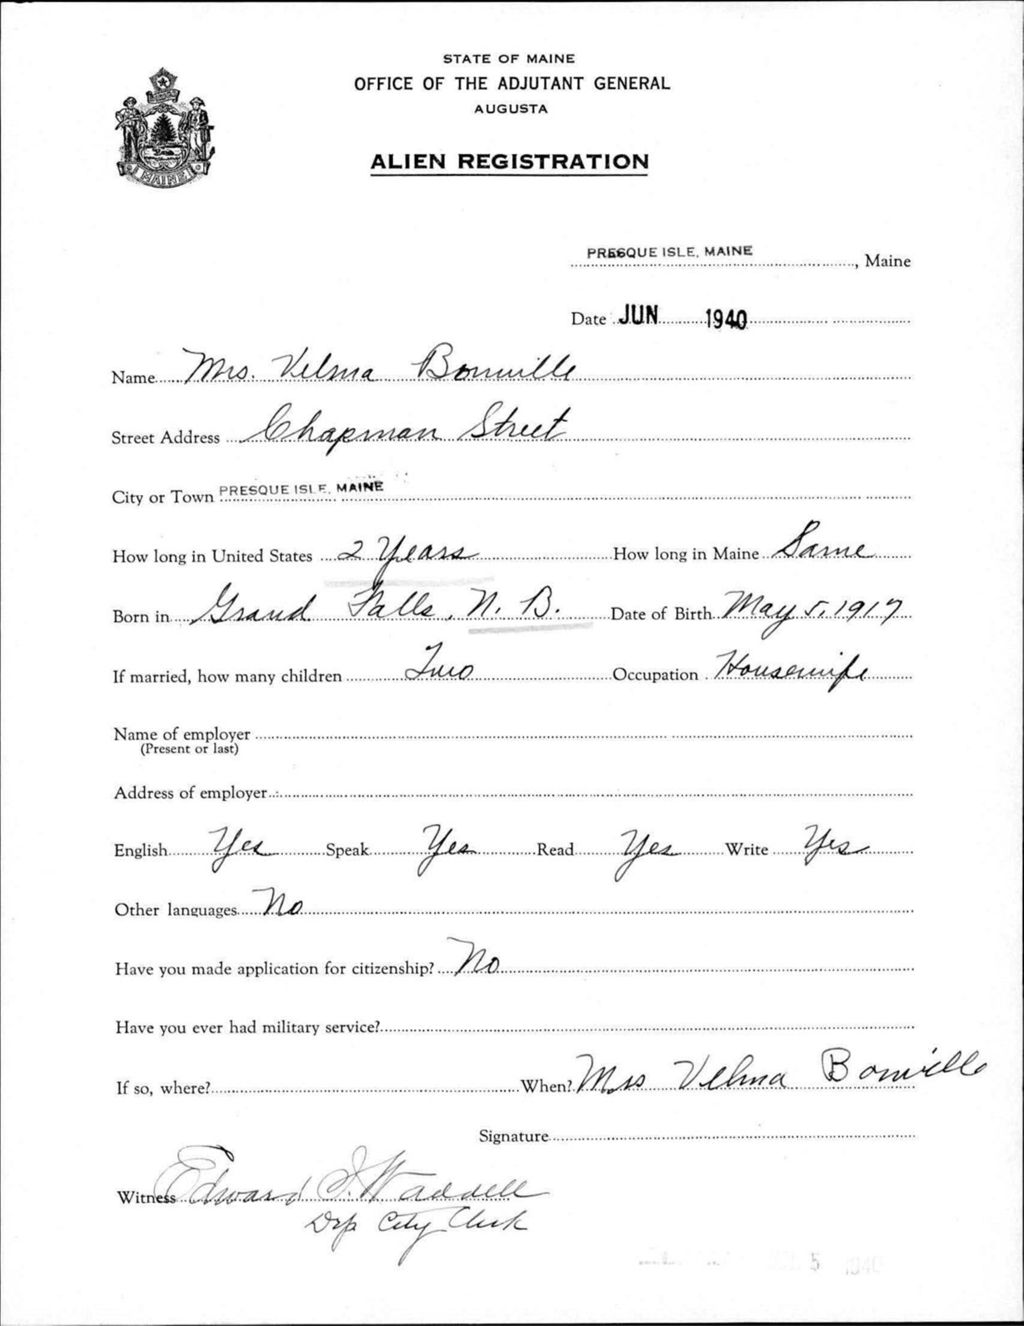 STATE OF MAINE
OFFICE OF THE ADJUTANT GENERAL
AUGUSTA
ALIEN REGISTRATION
MAINE
PRESQUE ISLE, MAINE, Maine
Date JUN 1940
Name Mrs. Velma Bonville
Street Address Chapman Street
City or Town PRESQUE ISLE, MAINE
How long in United States 2 Years How long in Maine Same
Born in Grand Falls, N. B. Date of Birth May 5, 1917
If married, how many children Two Occupation Housewife
Name of employer
(Present or last)
Address of employer
English Yes Speak Yes Read Yes Write Yes
Other languages No
Have you made application for citizenship? No
Have you ever had military service?
If so, where? When? Mrs Velma Bonville
Signature
Witness Edward I. Waddell
Dep City Clerk
5 1940